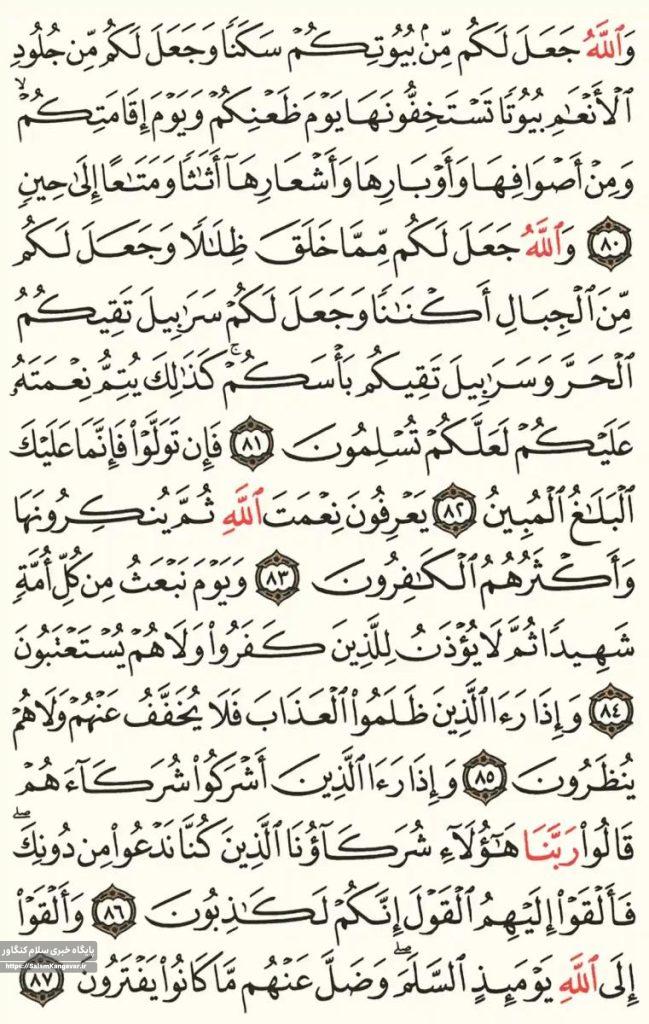 وَٱللَّهُ جَعَلَ لَكُم مِّنۢ بُيُوتِكُمۡ سَكَنٗا وَجَعَلَ لَكُم مِّن جُلُودِ
ٱلۡأَنۡعَٰمِ بُيُوتٗا تَسۡتَخِفُّونَهَا يَوۡمَ ظَعۡنِكُمۡ وَيَوۡمَ إِقَامَتِكُمۡۙ
وَمِنۡ أَصۡوَافِهَا وَأَوۡبَارِهَا وَأَشۡعَارِهَآ أَثَٰثٗا وَمَتَٰعًا إِلَىٰ حِينٖ
٨٠ وَٱللَّهُ جَعَلَ لَكُم مِّمَّا خَلَقَ ظِلَٰلٗا وَجَعَلَ لَكُم
مِّنَ ٱلۡجِبَالِ أَكۡنَٰنٗا وَجَعَلَ لَكُمۡ سَرَٰبِيلَ تَقِيكُمُ
ٱلۡحَرَّ وَسَرَٰبِيلَ تَقِيكُم بَأۡسَكُمۡۚ كَذَٰلِكَ يُتِمُّ نِعۡمَتَهُۥ
عَلَيۡكُمۡ لَعَلَّكُمۡ تُسۡلِمُونَ ٨١ فَإِن تَوَلَّوۡاْ فَإِنَّمَا عَلَيۡكَ
ٱلۡبَلَٰغُ ٱلۡمُبِينُ ٨٢ يَعۡرِفُونَ نِعۡمَتَ ٱللَّهِ ثُمَّ يُنكِرُونَهَا
وَأَكۡثَرُهُمُ ٱلۡكَٰفِرُونَ ٨٣ وَيَوۡمَ نَبۡعَثُ مِن كُلِّ أُمَّةٖ
شَهِيدٗا ثُمَّ لَا يُؤۡذَنُ لِلَّذِينَ كَفَرُواْ وَلَا هُمۡ يُسۡتَعۡتَبُونَ
٨٤ وَإِذَا رَءَا ٱلَّذِينَ ظَلَمُواْ ٱلۡعَذَابَ فَلَا يُخَفَّفُ عَنۡهُمۡ وَلَا هُمۡ
يُنظَرُونَ ٨٥ وَإِذَا رَءَا ٱلَّذِينَ أَشۡرَكُواْ شُرَكَآءَهُمۡ
قَالُواْ رَبَّنَا هَٰٓؤُلَآءِ شُرَكَآؤُنَا ٱلَّذِينَ كُنَّا نَدۡعُواْ مِن دُونِكَۖ
فَأَلۡقَوۡاْ إِلَيۡهِمُ ٱلۡقَوۡلَ إِنَّكُمۡ لَكَٰذِبُونَ ٨٦ وَأَلۡقَوۡاْ
إِلَى ٱللَّهِ يَوۡمَئِذٍ ٱلسَّلَمَۖ وَضَلَّ عَنۡهُم مَّا كَانُواْ يَفۡتَرُونَ ٨٧
پایگاه خبری سلام کنگاور
https://SalamKangavar.ir